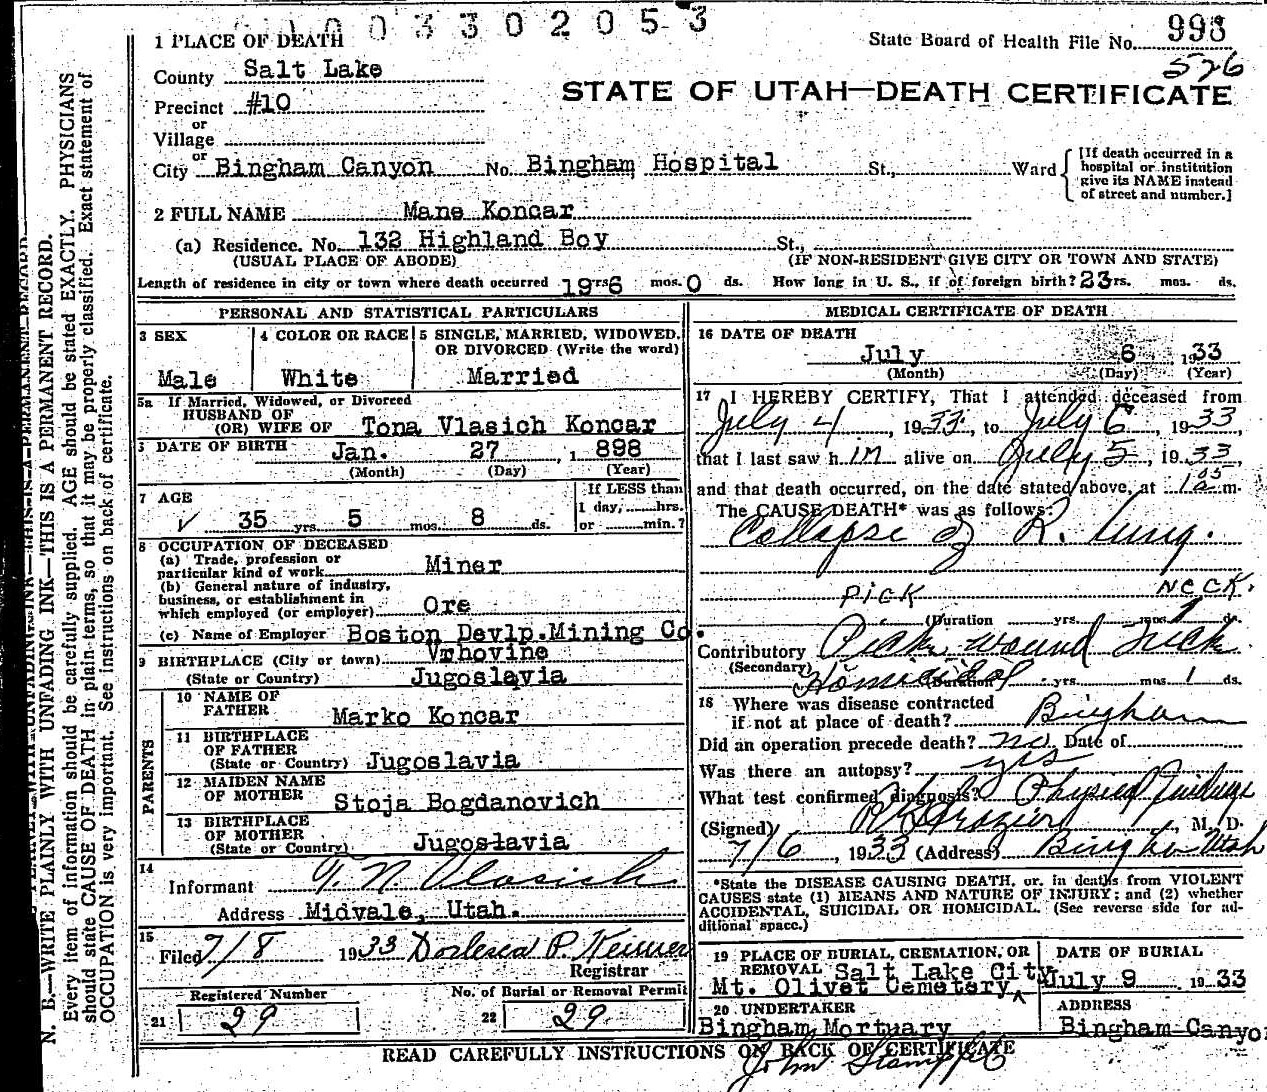 0 0 3 3 0 2 0 5 3
1 PLACE OF DEATH
State Board of Health File No. 993
526
County Salt Lake
STATE OF UTAH—DEATH CERTIFICATE
Precinct #10
or
Village
or
City Bingham Canyon No. Bingham Hospital St., Ward
[If death occurred in a
hospital or institution
give its NAME instead
of street and number.]
2 FULL NAME Mane Koncar
(a) Residence. No. 132 Highland Boy St.,
(USUAL PLACE OF ABODE) (IF NON-RESIDENT GIVE CITY OR TOWN AND STATE)
Length of residence in city or town where death occurred 19 yrs 6 mos. 0 ds. How long in U. S., if of foreign birth? 23 rs. mos. ds.
PERSONAL AND STATISTICAL PARTICULARS
3 SEX
Male
4 COLOR OR RACE
White
5 SINGLE, MARRIED, WIDOWED,
OR DIVORCED (Write the word)
Married
5a If Married, Widowed, or Divorced
HUSBAND OF
(OR) WIFE OF Tona Vlasich Koncar
DATE OF BIRTH Jan. 27 , 1 898
(Month) (Day) (Year)
7 AGE
35 yrs 5 mos. 8 ds.
If LESS than
1 day, hrs.
or min.?
8 OCCUPATION OF DECEASED
(a) Trade, profession or
particular kind of work Miner
(b) General nature of industry,
business, or establishment in
which employed (or employer) Ore
(c) Name of Employer Boston Devlp.Mining Co.
9 BIRTHPLACE (City or town) Vrhovine
(State or Country) Jugoslavia
PARENTS
10 NAME OF
FATHER Marko Koncar
11 BIRTHPLACE
OF FATHER
(State or Country) Jugoslavia
12 MAIDEN NAME
OF MOTHER Stoja Bogdanovich
13 BIRTHPLACE
OF MOTHER
(State or Country) Jugoslavia
14
Informant T. N. Vlasich
Address Midvale, Utah.
15
Filed 7/8 1933 P. Keimer
Registrar
Registered Number
21 29
No. of Burial or Removal Permit
22 29
MEDICAL CERTIFICATE OF DEATH
16 DATE OF DEATH
July 6 1933
(Month) (Day) (Year)
17 I HEREBY CERTIFY, That I attended deceased from
July 4, 1933, to July 6, 1933,
that I last saw him alive on July 5, 1933,
and that death occurred, on the date stated above, at 1 05 m.
The CAUSE DEATH* was as follows:
Collapse of R. lung.
PICK NECK.
(Duration yrs. mos. 1 ds.
Contributory Pick wound neck
(Secondary) Homicidal
(Duration yrs. mos. 1 ds.
18 Where was disease contracted
if not at place of death? Bingham
Did an operation precede death? no Date of
Was there an autopsy? yes
What test confirmed diagnosis? Physical findings
(Signed) Frazier, M. D.
7/6, 1933 (Address) Bingham Utah
*State the DISEASE CAUSING DEATH, or, in deaths from VIOLENT
CAUSES state (1) MEANS AND NATURE OF INJURY; and (2) whether
ACCIDENTAL, SUICIDAL OR HOMICIDAL. (See reverse side for ad-
ditional space.)
19 PLACE OF BURIAL, CREMATION, OR
REMOVAL Salt Lake City
Mt. Olivet Cemetery
DATE OF BURIAL
July 9 1933
20 UNDERTAKER
Bingham Mortuary
ADDRESS
Bingham Canyon
READ CAREFULLY INSTRUCTIONS ON BACK OF CERTIFICATE
John
N. B.—WRITE PLAINLY WITH UNFADING INK—THIS IS A PERMANENT RECORD.
Every item of information should be carefully supplied. AGE should be stated EXACTLY. PHYSICIANS
should state CAUSE OF DEATH in plain terms, so that it may be properly classified. Exact statement of
OCCUPATION is very important. See instructions on back of certificate.